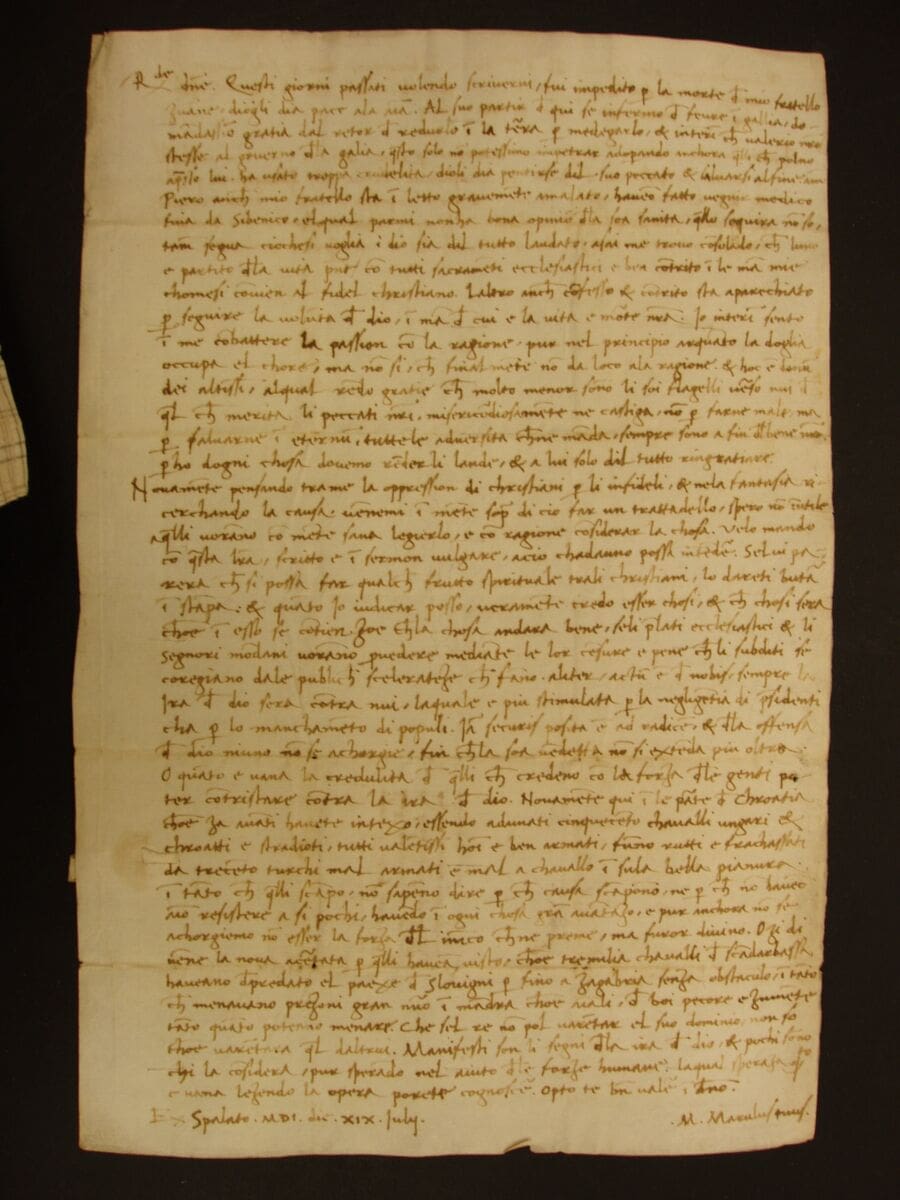 R.de dne. Questi giorni passati volendo scriverui, fui impedito p la morte đ mio fratello
Zuane, diogli dia pace ala aīa. Al suo partir đ qui se infermo đ feure ī gallia, do-
mādassīo gratia dal retor đ redurlo ī la terra p medegarlo, & interī ch valerio nro
stesse al governo đla galia, qsto solo nō potessimo impetrar adopando anchora qlli ch polno
lui. ha usato troppa crudelita, dioli dia pentirse dil suo peccato & saluarsi al fine.
Piero anch mio fratello sta ī letto gravemēte amalato, havēo fatto vegnir medico
fina da Sibenico, el qual parmi non ha bona opiniō đla soa sanita, qllo seguira nō so,
tam segua ciochesi voglia i dio sia dil tutto laudato. asai me trovo cōsolado, ch luno
e partito đla vita pnte cō tutti sacramēti ecclesiastici e bē cōtrito ī le mā mie
chomesi cōvien al fidel christiano. Laltro anch cōfesso & cōtrito sta aparechiato
p seguire la volūta đ dio, ī mā đ cui e la vita e morte nra. Io interī sento
ī me cōbattere la passion cō la ragione, pur nel principio arquāto la doglia
occupa el chore, ma nō sī, ch finalmēte nō da loco ala ragione. & hoc e donū
dei altissī, alqual rēdo gratie ch molto menor sono li soi flagelli verso nui đ
ql ch merita li peccati nri, misericordiosamēte ne castiga, nō p farne male, ma
p saluarne ī eternū, tutte le adversita chne māda, sempre sono a fin đl bene nro.
pho dogni chosa dovemo rēderli laude, & a lui solo dil tutto ringratiare.
Novamēte pensando tra me la oppression di christiani p li infideli, & nela fantasia ri-
cerchando la causa, venemi ī mēte sop di cio far un trattadello, spero nō īutile
a qlli vorano cō mēte sana legierlo, e cō ragione cōsiderar la chosa. Velo mando
cō qsta lra, scritto e ī sermon vulgare, acio chadauno possa intēder. Sel vi pa-
rera ch si possa far qualch frutto spirituale trali christiani, lo dareti butar
ī stāpa. & quāto Io iudicar posso, veramēte credo esser chosi, & ch chosi sera
choe ī esso se cōtien. Zoe chla chosa andara bene, seli plati ecclesiastici & li
Segnori mōdani vorano pvedere mediāte le lor cēsure e pene ch li subditi se
coregiano dale publich scelerateze ch fano. aliter, actū e đ nobis, sempre la
Ira đ dio sera cōtra nui, laquale e piu stimulata p la negligētia di psidenti
cha p lo manchamēto di populi. Iā securis posita e ad radicē, & đla offensa
đ dio niuno nō se achorgie, fin chla soa vēdetta nō si extēda piu oltre.
O quāto e vana la credulita đ qlli ch credeno cō la forza đle genti po-
ter cōtristare cōtra la ira đ dio. Novamēte qui ī le pāte đ Chroatia
choe za avāti havete intexo, essendo adunati cinquecēto chavalli ungari &
chroatti e stradioti, tutti valētissī hoī e ben armati, fūno rutti e frachassati
da trecēto turchi mal armati e mal a chavallo ī sula bella pianura.
ī tāto ch qlli scāpo, nō sapeno dire p ch causa scapono, ne p ch nō havēo
aīo resistere a si pochi, havēdo ī ogni chosa grā avātazo, e pur anchora nō se
achorgiemo nō esser la forza đl inīco chne preme, ma furor divino. Ozi di
vene la nova acētata p qlli haveā visto, choe tremilia chavalli đ Scādarbassa
haveano đpredato el paexe đ Slovigni p fino a Zagabria senza obstaculo, ī tāto
ch menavano prezoni gran nuō ī mādra choe aīali, đ boi pecore e Zumēte
tāto quāto poteano menare. Che sel re nō pol varētar el suo dominio, non so
choe varētara ql daltrui. Manifesti son li segni đla ira đ dio, & pochi sono
chi la cōsidera, pur sperādo nel aiuto đle forze humane, laqual sperāza qto
e vana lezendo la opera porete cognoscer. Opto te bn vale ī dno.
Ex Spalato. MDI. die XIX. July. M. Marulus